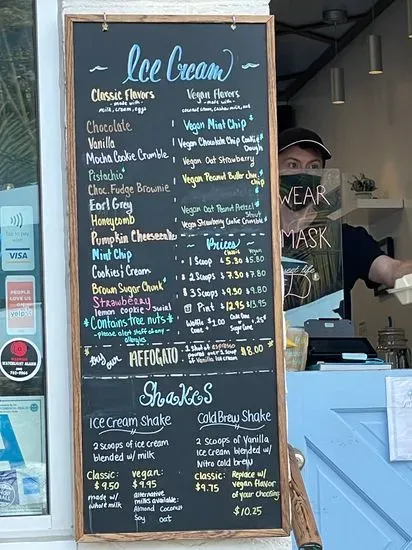 Ice Cream
Classic Flavors
- made with -
milk, cream, eggs
Chocolate
Vanilla
Mocha Cookie Crumble
Pistachio*
Choc. Fudge Brownie
Earl Grey
Honeycomb
Pumpkin Cheesecake
Mint Chip
Cookies & Cream
Brown Sugar Chunk
Strawberry
lemon cookie swirl
*Contains tree nuts*
please alert staff
of any allergies
Vegan Flavors
- made with -
coconut cream, cashew milk, oat
Vegan Mint Chip
Vegan Chocolate Chip Cookie
Dough
Vegan Oat Strawberry
Vegan Peanut Butter choc
chip
Vegan Oat Peanut Pretzel
Vegan Strawberry Cookie Crumble
Prices
Classic Vegan
1 Scoop $5.30 $5.80
2 Scoops $7.30 $7.80
3 Scoops $9.30 $9.80
Pint $12.95 $13.95
Waffle Cone $1.00
Cake Cone or Sugar Cone $.25
try our AFFOGATO
1 shot of espresso
poured over 1 scoop
of Vanilla ice cream
$8.00
Shakes
ICE CREAM SHAKE
2 scoops of ice cream
blended w/ milk
Classic:
$9.50
made w/
whole milk
vegan:
$9.95
alternative
milks available:
Almond Coconut
Soy oat
COLD BREW SHAKE
2 Scoops of Vanilla
ice cream blended w/
Nitro cold brew
Classic:
$9.75
Replace w/
vegan Flavor
of your choosing
$10.25
WEAR
MASK
tap to pay
VISA
People love us
yelp